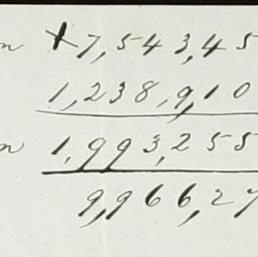 n X7,543,45
1,238,910
n 1,993,255
9,966,27